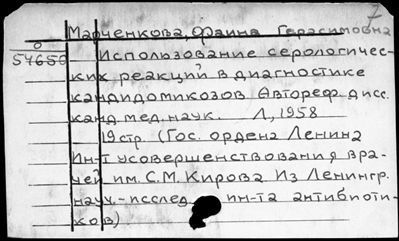 7
Марченкова, Фаина Герасимовна
0
54650
Использование серологичес-
ких реакций в диагностике
кандидомикозов Автореф. дисс.
канд. мед. наук. Л, 1958
19 стр. (Гос. ордена Ленина
Ин-т усовершенствования вра-
чей им. С.М. Кирова Из Ленингр.
науч.-исслед. ин-та антибиоти-
ков)